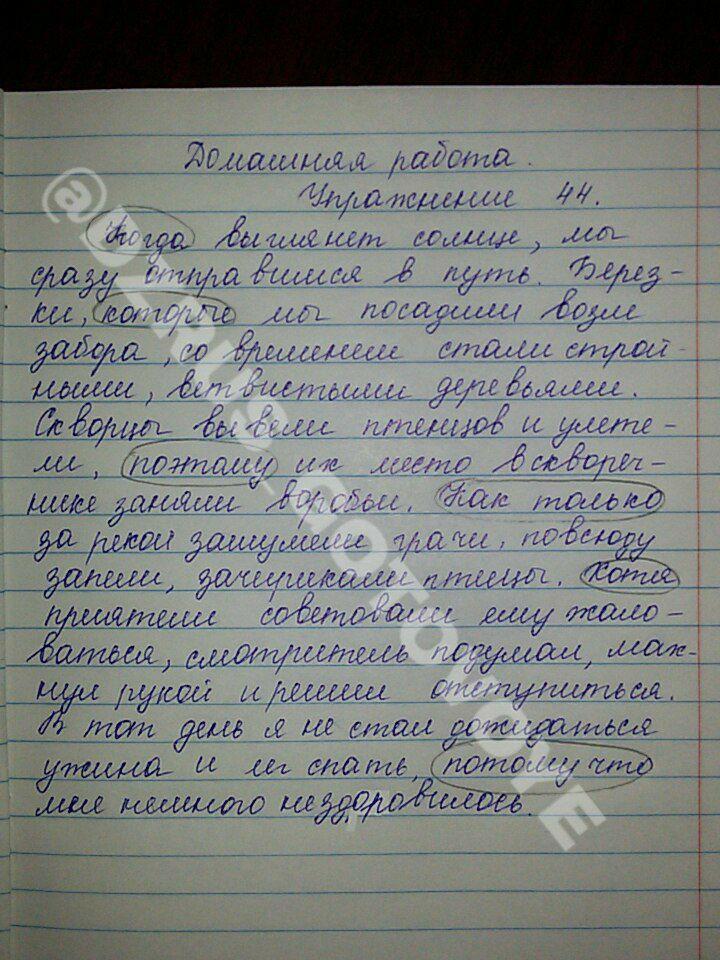 Домашняя работа.
Упражнение 44.
Когда выглянет солнце, мы
сразу отправимся в путь. Берез-
ки, которые мы посадили возле
забора, со временем стали строй-
ными, ветвистыми деревьями.
Скворцы вывели птенцов и улете-
ли, поэтому их место в сквореч-
нике заняли воробьи. Как только
за рекой зашумели грачи, повсюду
запели, зачирикали птицы. Хотя
приятели советовали ему жало-
ваться, смотритель подумал, мах-
нул рукой и решил отступиться.
В тот день я не стал дожидаться
ужина и лег спать, потому что
мне немного нездоровилось.
@DZRUS_GOTOVOYE